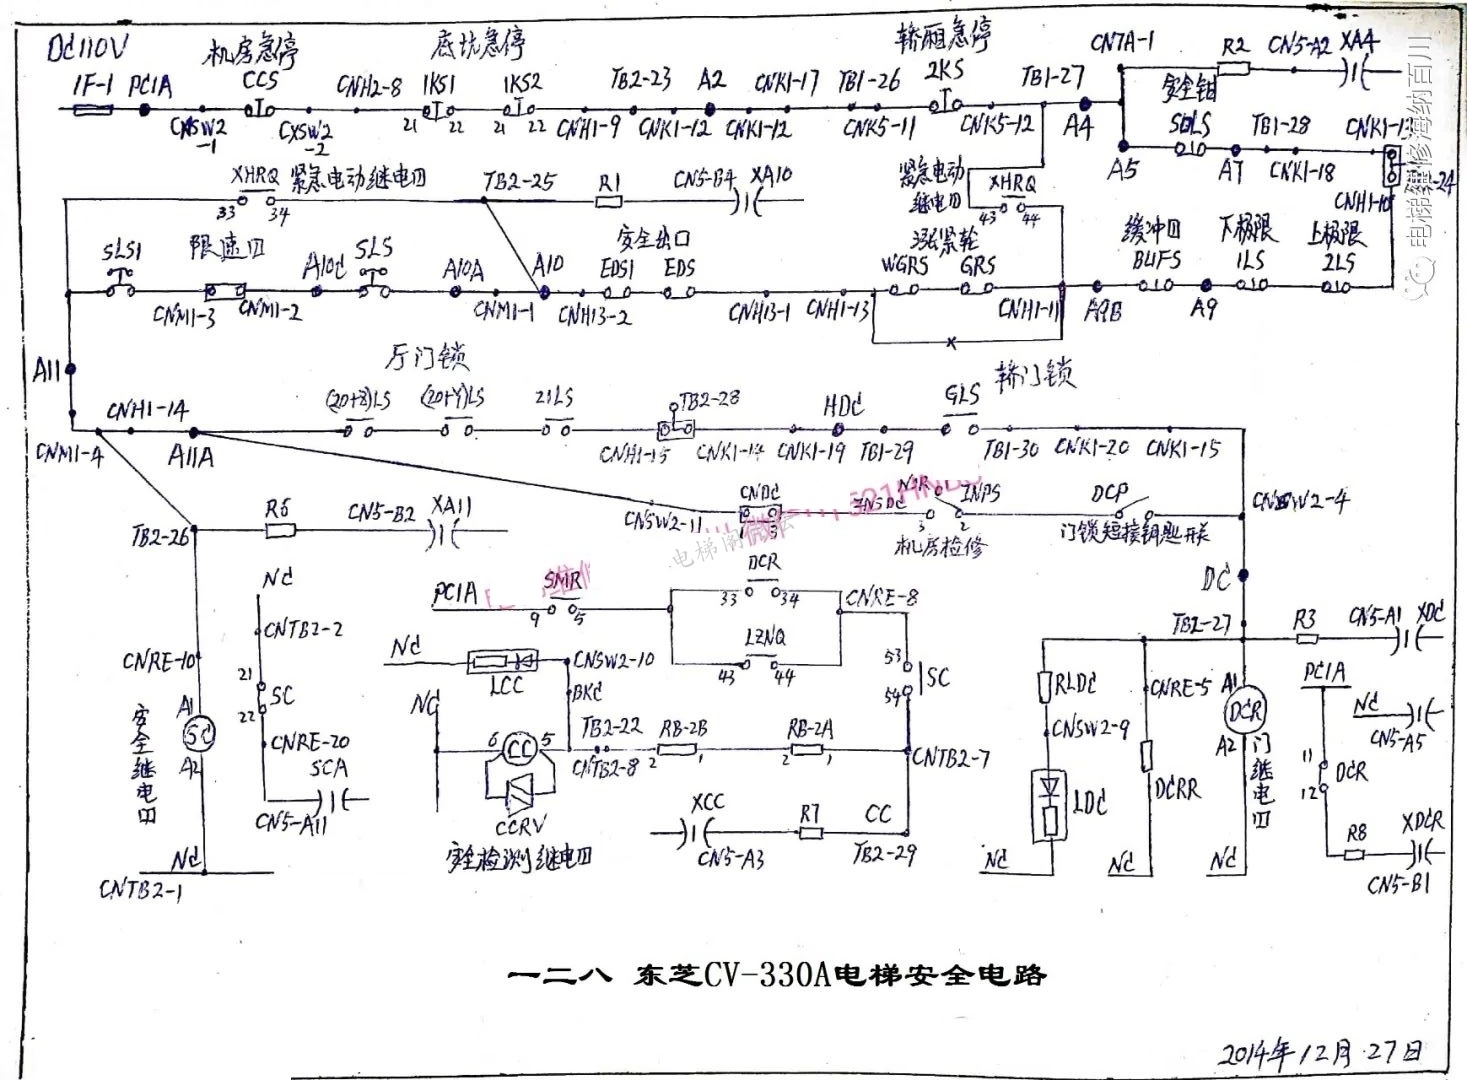 DC110V
机房急停
底坑急停
轿厢急停
1F-1 PC1A
CCS
CNH2-8
1KS1
1KS2
TB2-23
A2
CNK1-17
TB1-26
2KS
TB1-27
CN7A-1
R2
CN5-A2
XA4
CNSW2-1
CXSW2-2
21 22
21 22
CNH1-9
CNK1-12
CNK1-12
CNK5-11
CNK5-12
A4
安全钳
SDLS
TB1-28
A5
A7
CNK1-18
CNH1-10
XHRQ 紧急电动继电器
33 34
TB2-25
R1
CN5-B4
XA10
紧急电动
继电器
XHRQ
43 44
SLS1
限速器
A10C
SLS
A10A
A10
安全出口
EDS1
EDS
涨紧轮
WGRS
GRS
缓冲器
BUFS
下极限
1LS
上极限
2LS
CNM1-3
CNM1-2
CNM1-1
CNH13-2
CNH13-1
CNH1-13
CNH1-11
A9B
A9
A11
厅门锁
轿门锁
CNH1-14
(20+Z)LS
(20+Y)LS
21LS
TB2-28
HDC
GLS
CNM1-4
A11A
CNH1-15
CNK1-14
CNK1-19
TB1-29
TB1-30
CNK1-20
CNK1-15
R6
CN5-B2
XA11
TB2-26
CNSW2-11
CNDC
INSDC
INPS
3 2
机房检修
DCP
门锁短接钥匙开关
CNSW2-4
NC
CNTB2-2
PC1A
SMR
9 5
DCR
33 34
CNRE-8
DC
TB2-27
R3
CN5-A1
XDC
LZNQ
43 44
NC
LCC
CNSW2-10
BKC
53
54
SC
CNRE-10
21
SC
22
CNRE-20
SCA
CN5-A11
安全继电器
A1
SC
A2
NC
CNTB2-1
NC
6 CC 5
TB2-22
CNTB2-8
RB-2B
2 1
RB-2A
2 1
CNTB2-7
CCRV
安全检测继电器
XCC
CN5-A3
R7
CC
TB2-29
RLDC
CNSW2-9
LDC
NC
CNRE-5
DCRR
NC
A1
DCR
A2
门继电器
NC
PC1A
NC
CN5-A5
11
12
DCR
R8
XDCR
CN5-B1
一二八 东芝CV-330A电梯安全电路
2014年12月27日
电梯维修海纳百川